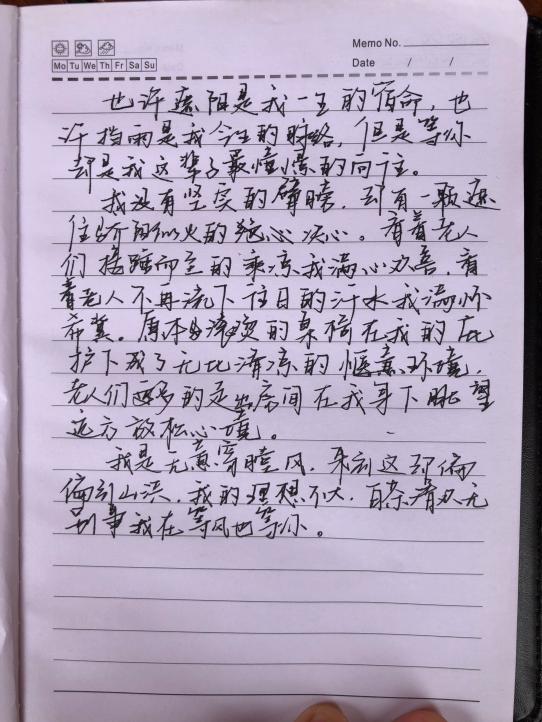 Memo No.
Mo Tu We Th Fr Sa Su
Date / /
也许遮阳是我一生的宿命，也
许挡雨是我今生的脉络，但是等你
却是我这辈子最憧憬的向往。
我没有坚实的臂膀，却有一颗遮
住骄阳似火的决心。看着老人
们接踵而至的乘凉我满心欢喜，看
着老人不再流下往日的汗水我满怀
希冀。原本的桌椅在我的庇
护下成了无比清凉的惬意环境，
老人们更多的走出房间在我身下眺望
远方放松心境。
我是无意穿堂风，来到这
偏引山洪，我的理想不大，百无
别事我在等风也等你。